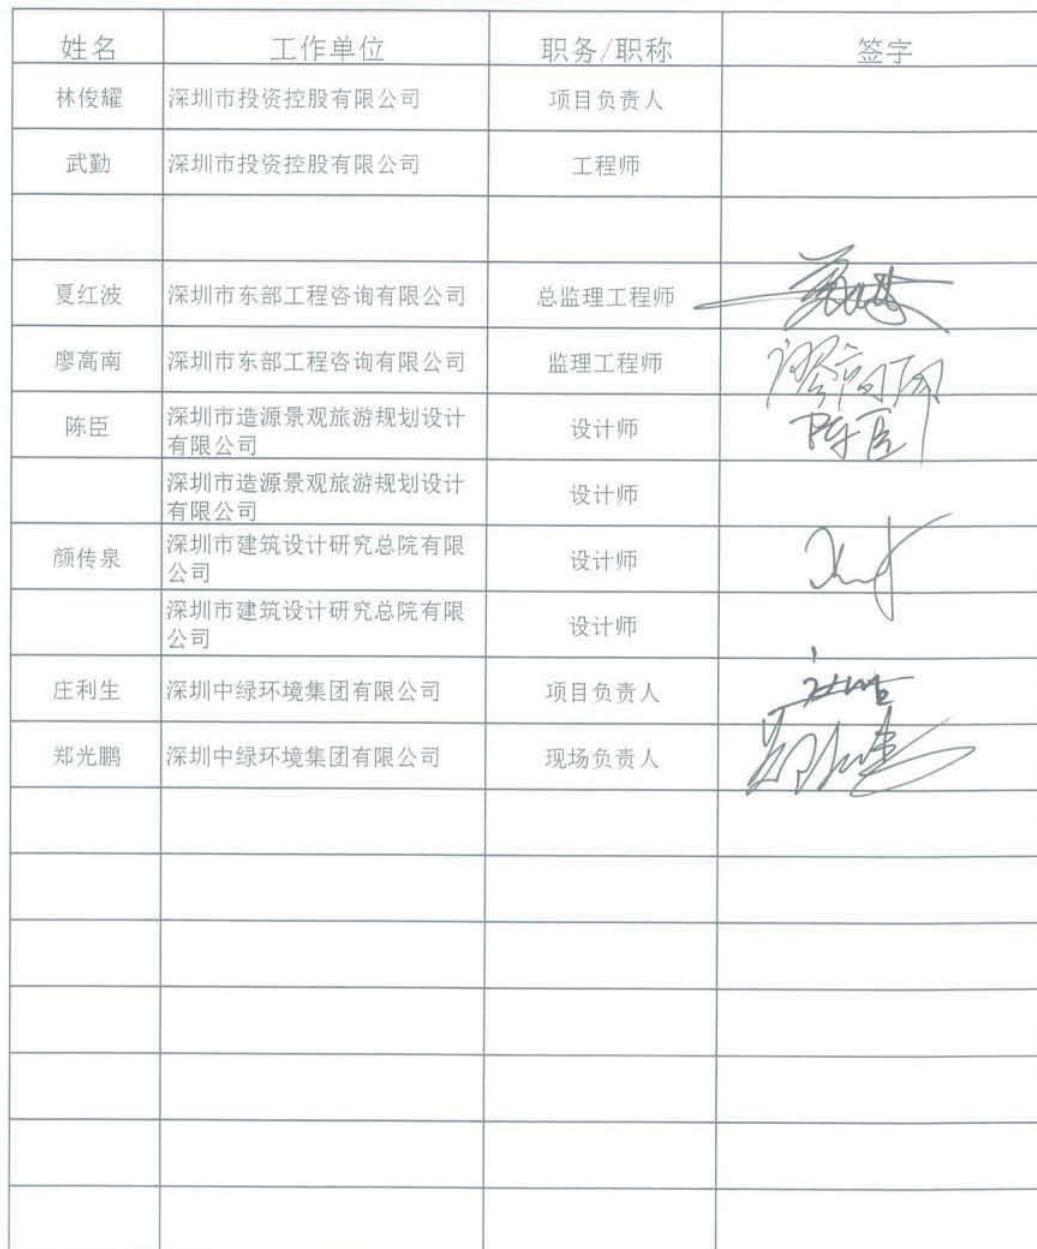 姓名 工作单位 职务/职称 签字
林俊耀 深圳市投资控股有限公司 项目负责人
武勤 深圳市投资控股有限公司 工程师
夏红波 深圳市东部工程咨询有限公司 总监理工程师
廖高南 深圳市东部工程咨询有限公司 监理工程师 廖高南
陈臣 深圳市造源景观旅游规划设计 设计师 陈臣
有限公司
深圳市造源景观旅游规划设计 设计师
有限公司
颜传泉 深圳市建筑设计研究总院有限 设计师
公司
深圳市建筑设计研究总院有限 设计师
公司
庄利生 深圳中绿环境集团有限公司 项目负责人
郑光鹏 深圳中绿环境集团有限公司 现场负责人